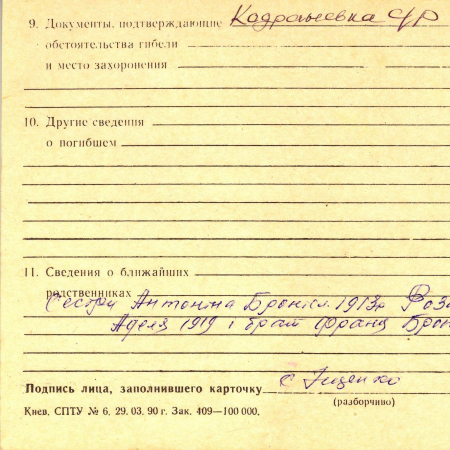 9. Документы, подтверждающие Кадрашевка ФР
обстоятельства гибели
и место захоронения
10. Другие сведения
о погибшем
11. Сведения о ближайших
родственниках
Сестри Антоніна Бронісл. 1913р Роза
Аделя 1919 і брат Франц Брон
Подпись лица, заполнившего карточку
(разборчиво)
Киев. СПТУ № 6. 29. 03. 90 г. Зак. 409—100 000.